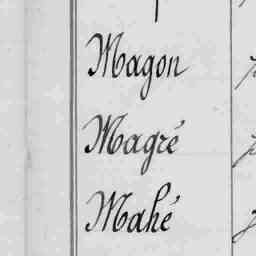 Magon
Magré
Mahé